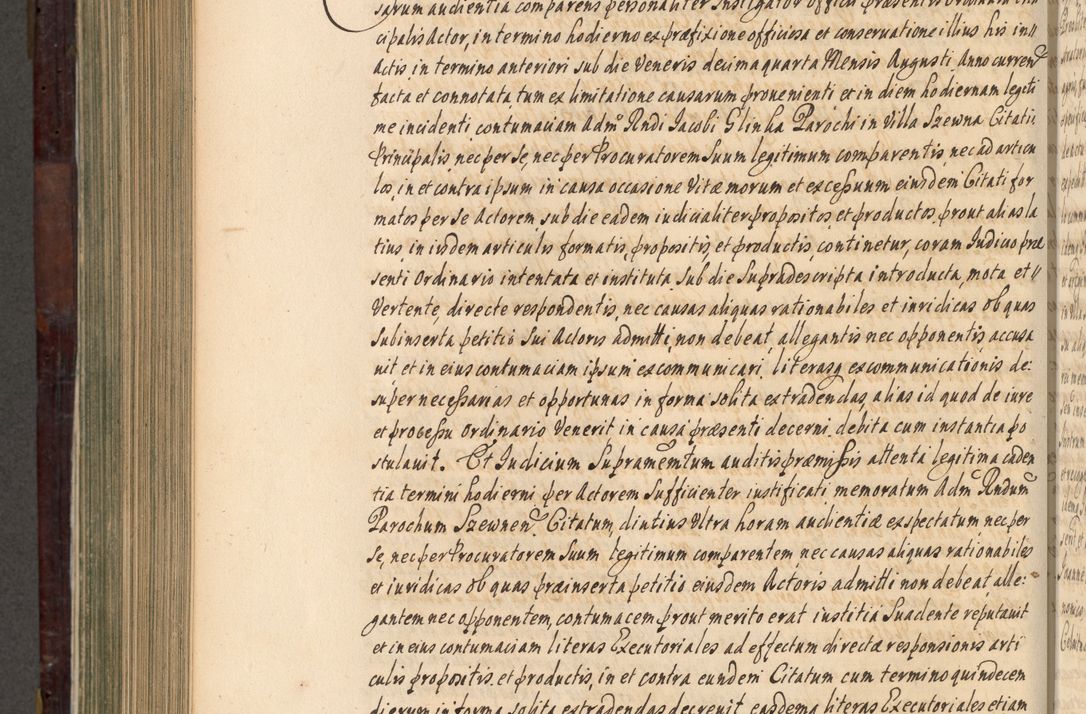 sarum audientia comparens personaliter Instigator Officii præsentis Ordinarii
cipalis Actor, in termino hodierno ex præfixione officiosa et conseruatione illius his in//
Actis in termino anteriori sub die Veneris decima quarta Mensis Augusti Anno curren
facta et connotata, tum ex limitatione causarum prouenienti et in diem hodiernam legiti
me incidenti contumaciam Adm Rndi Jacobi Glinka Parochi in Villa Szewna Citati
Principalis, nec per se, nec per Procuratorem Suum legitimum comparentis, nec ad articu
los, in et contra ipsum in causa occasione Vitæ morum et excessuum eiusdem Citati for
matos per se Actorem sub die eadem iudicialiter propositos et productos, prout alias la
tius, in iisdem articulis formatis, propositis, et productis, continetur, coram Iudicio præ
senti Ordinario intentata et instituta, sub die Supradescripta introducta, mota et //
Vertente, directe respondentis, nec causas aliquas rationabiles et iuridicas ob quas
Subinserta petitio Sui Actoris admitti, non debeat, allegantis nec opponentis accusa
uit et in eius contumaciam ipsum excommunicari, literasq excommunicationis de:
super necessarias et opportunas in forma solita extradendas, alias id quod de iure
et processu Ordinario Venerit in causa præsenti decerni debita cum instantia po
stulauit. Et Iudicium Supramentum auditis præmissis attenta legitima caden
tia termini hodierni per Actorem Sufficienter iustificati memoratum Adm Rndum
Parochum Szewnen Citatum, diutius Ultra horam audientiæ expectatum nec per
se, nec per Procuratorem Suum legitimum comparentem nec causas aliquas rationabiles
et iuridicas ob quas præinserta petitio eiusdem Actoris admitti non debeat, alle:
gantem nec opponentem, contumacem prout merito erat iustitia Suadente reputauit
et in eius contumaciam literas Executoriales ad effectum directæ responsionis arti
culis propositis et productis, in et contra eundem Citatum cum termino quindecem
dierum in forma solita extradendas decreuit, easdema literas Executoriales etiam